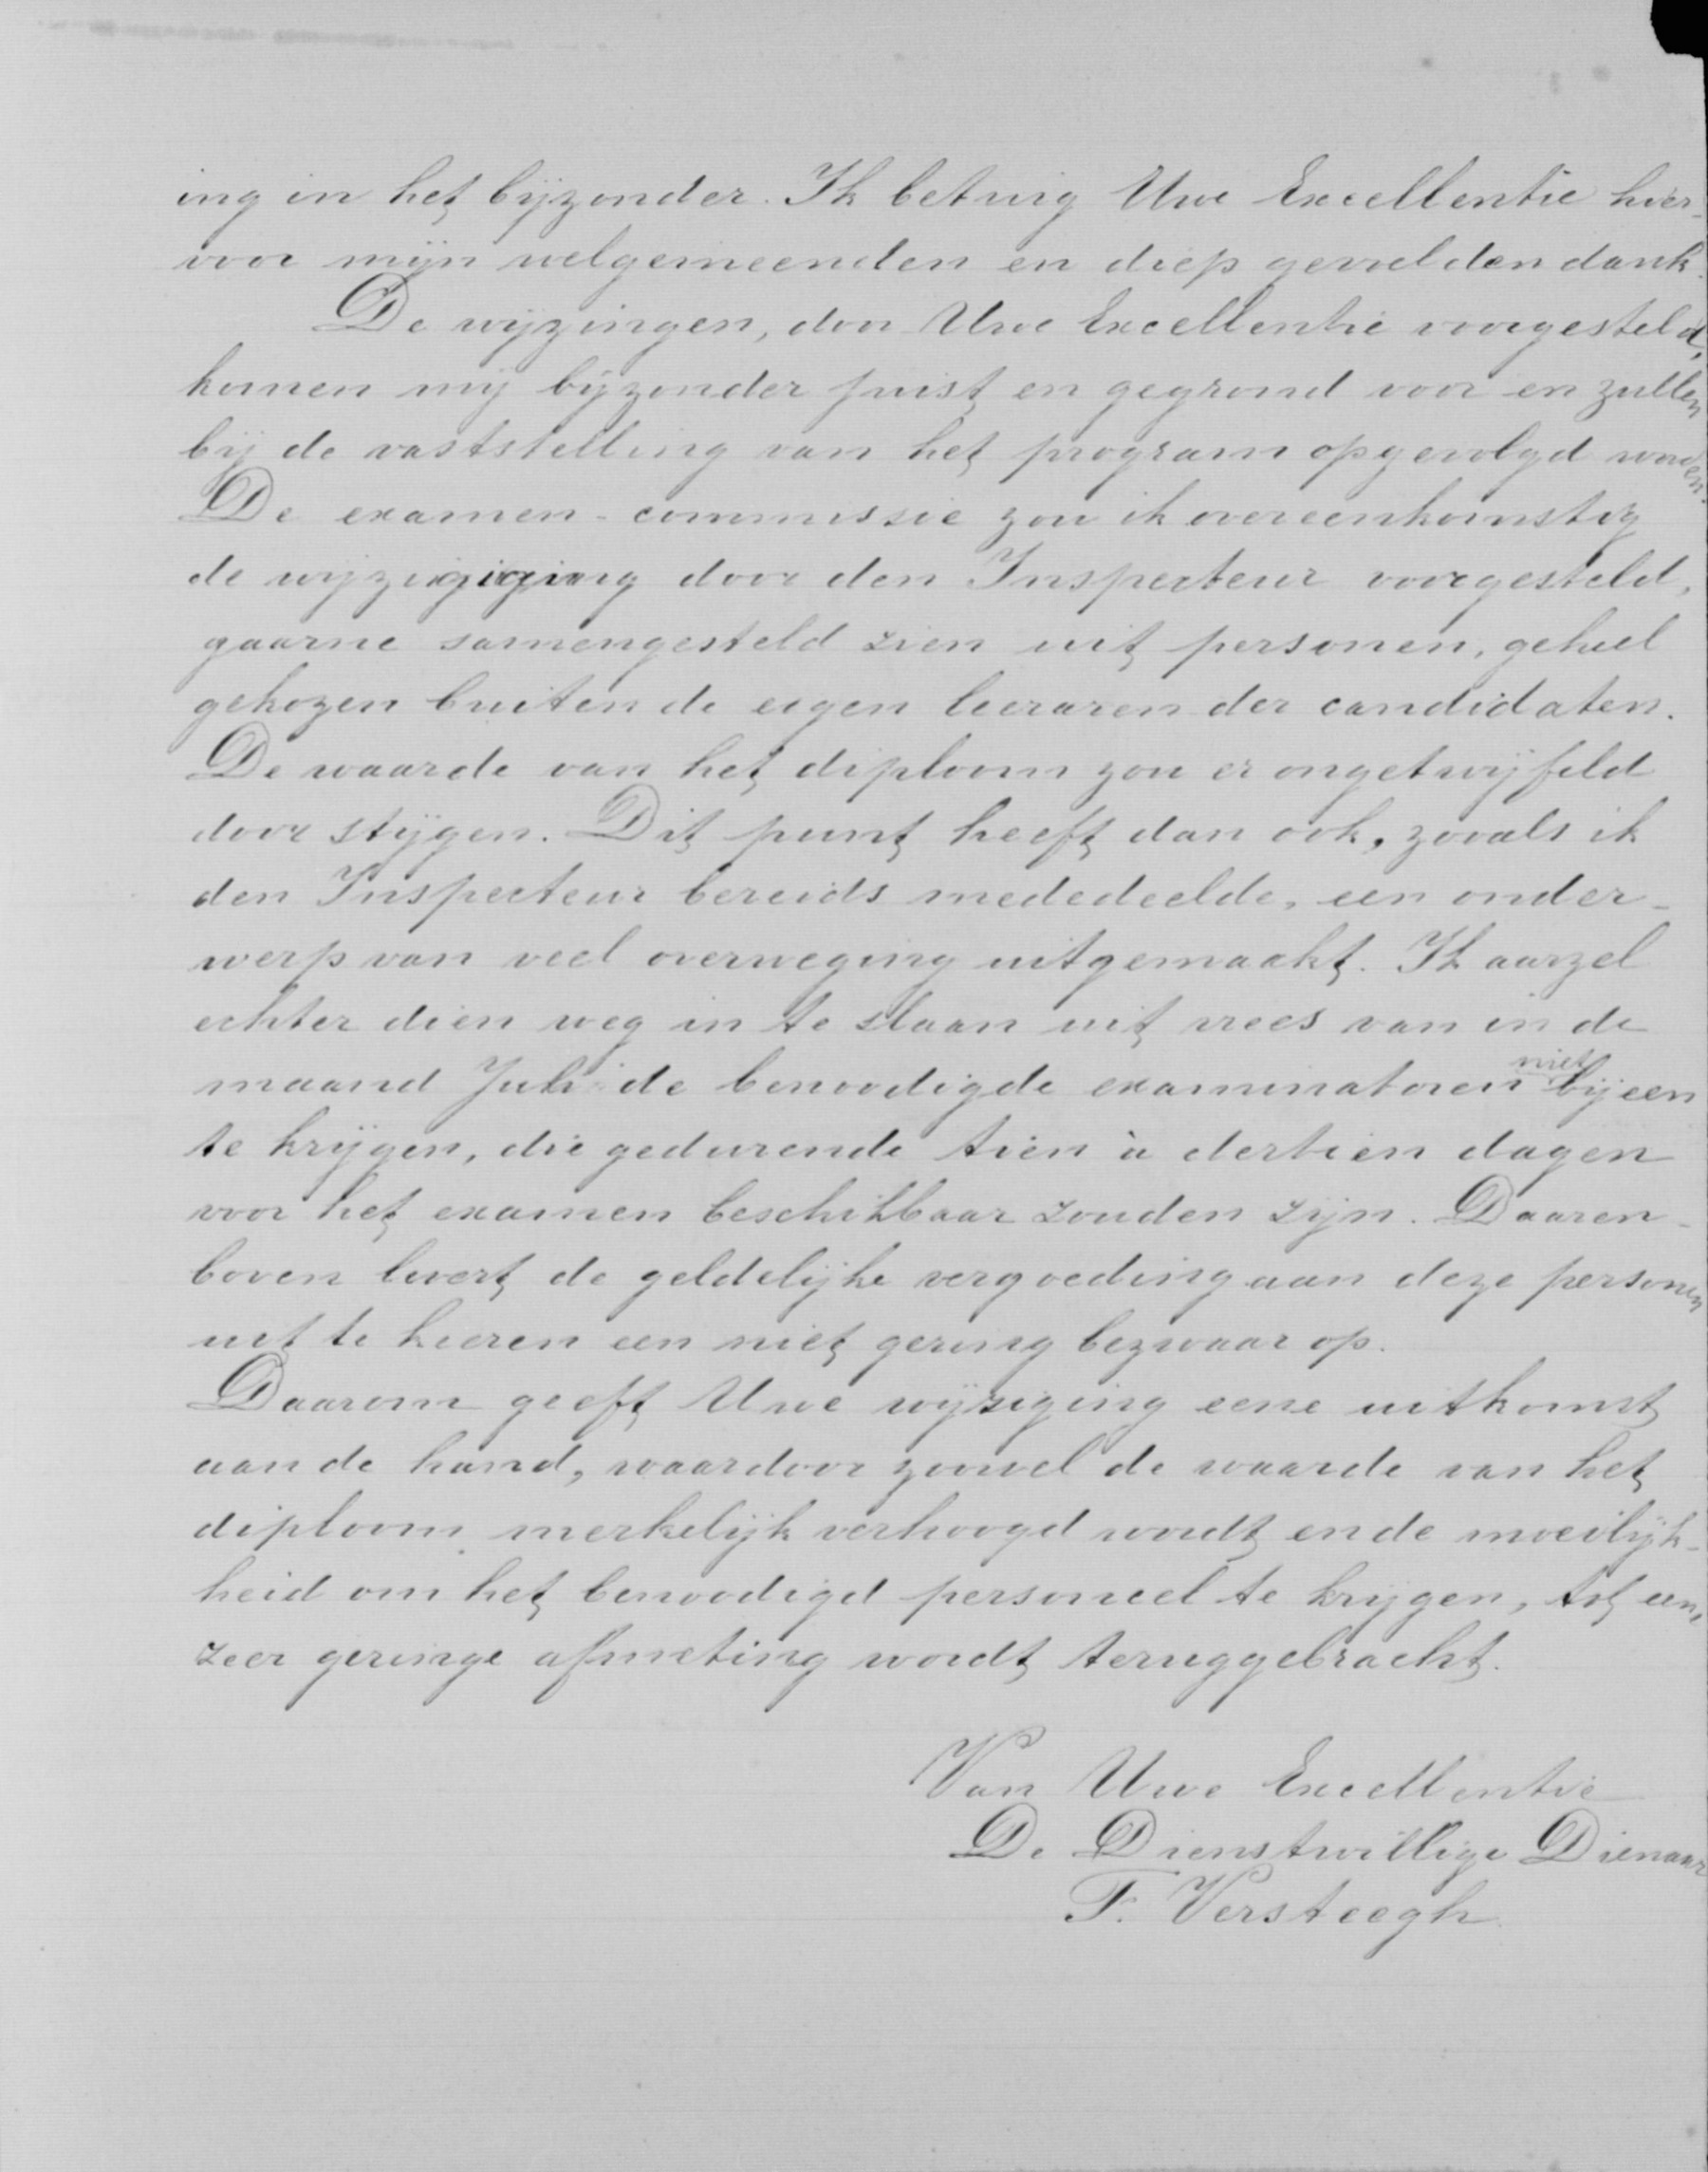 ing in het bijzonder. Ik betuig Uwe Excellentie hier-
voor mijn welgemeenden en diep gevoelden dank.
De wijzingen, door Uwe Excellentie voorgesteld,
komen mij bijzonder juist en gegrond voor en zullen
bij de vaststelling van het program opgevolgd worden.
De examen-commissie zou ik overeenkomstig
de wijziging door den Inspecteur voorgesteld,
gaarne samengesteld zien uit personen, geheel
gekozen buiten de eigen leeraren der candidaten.
De waarde van het diploom zou er ongetwijfeld
door stijgen. Dit punt heeft dan ook, zooals ik
den Inspecteur bereids mededeelde, een onder-
werp van veel overweging uitgemaakt. Ik aarzel
echter dien weg in te slaan uit vrees van in de
maand Juli de benoodigde examinatoren niet bijeen
te krijgen, die gedurende tien à dertien dagen
voor het examen beschikbaar zouden zijn. Daaren-
boven levert de geldelijke vergoeding aan deze personen
uit te keeren een niet gering bezwaar op.
Daarom geeft Uwe wijziging eene uitkomst
aan de hand, waardoor zoowel de waarde van het
diploom merkelijk verhoogd wordt en de moeilijk-
heid om het benoodigd personeel te krijgen, tot een
zeer geringe afmeting wordt teruggebracht.
Van Uwe Excellentie
De Dienstwillige Dienaar
F. Versteegh